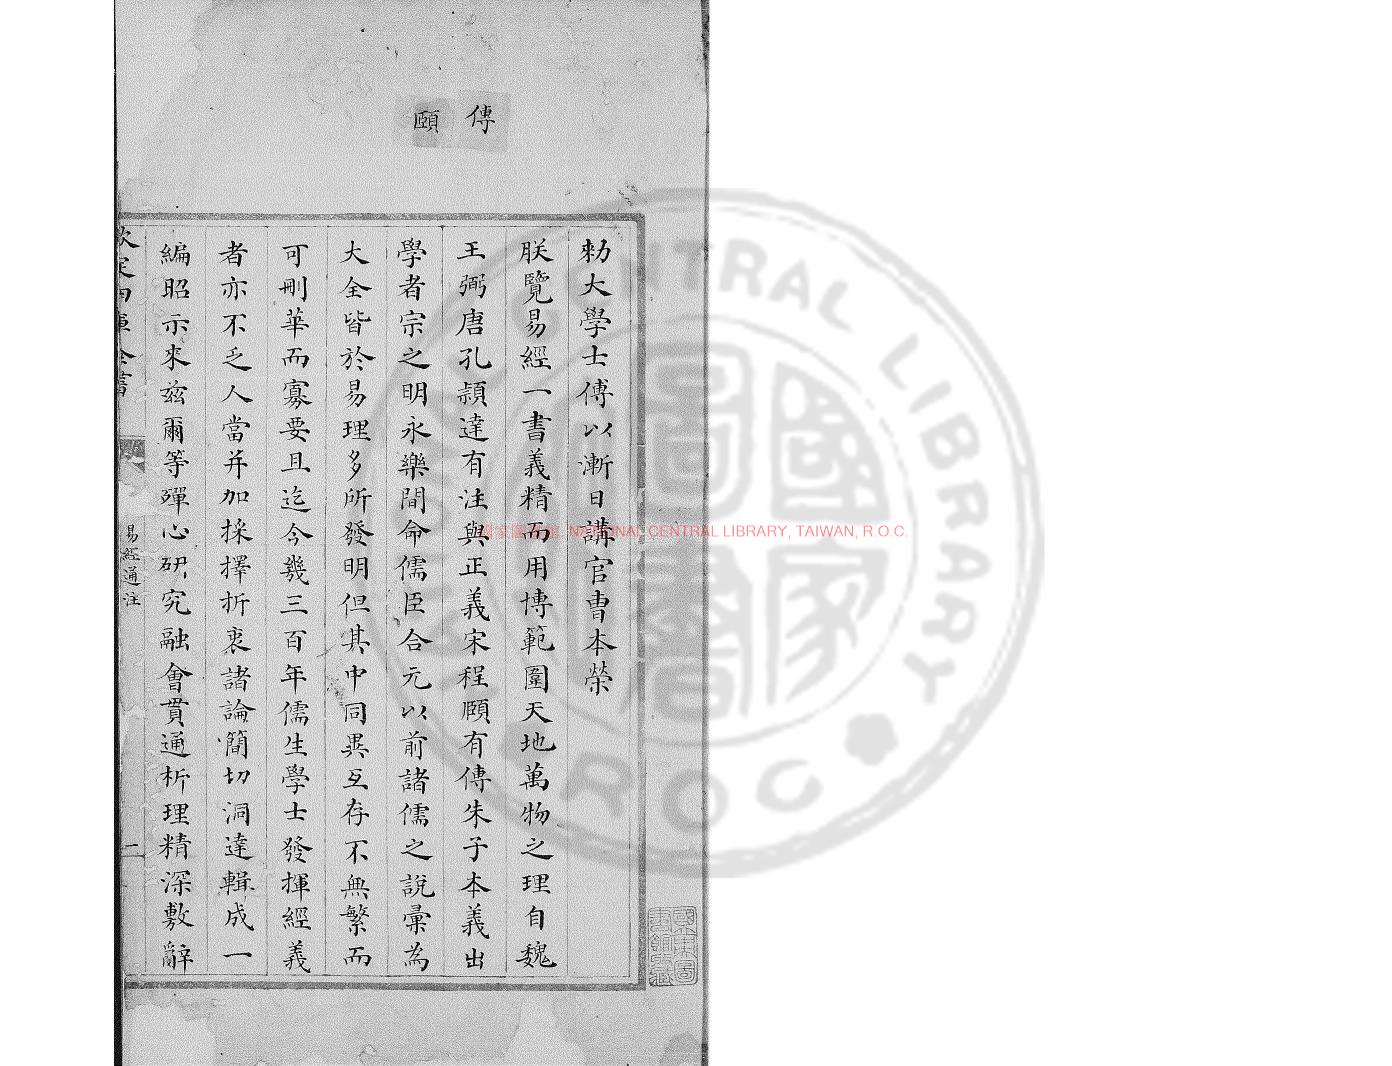 傳
頤
勑大學士傅以漸日講官曹本榮
朕覽易經一書義精而用博範圍天地萬物之理自魏
王弼唐孔頴達有注與正義宋程頤有傳朱子本義出
學者宗之明永樂間命儒臣合元以前諸儒之說彙為
大全皆於易理多所發明但其中同異互存不無繁而
可刪華而寡要且迄今幾三百年儒生學士發揮經義
者亦不乏人當并加採擇折衷諸論簡切洞達輯成一
編昭示來兹爾等殫心研究融會貫通析理精深敷辭
易經通注
一
國家圖書館, NATIONAL CENTRAL LIBRARY, TAIWAN, R.O.C.
CENTRAL LIBRARY
R.O.C